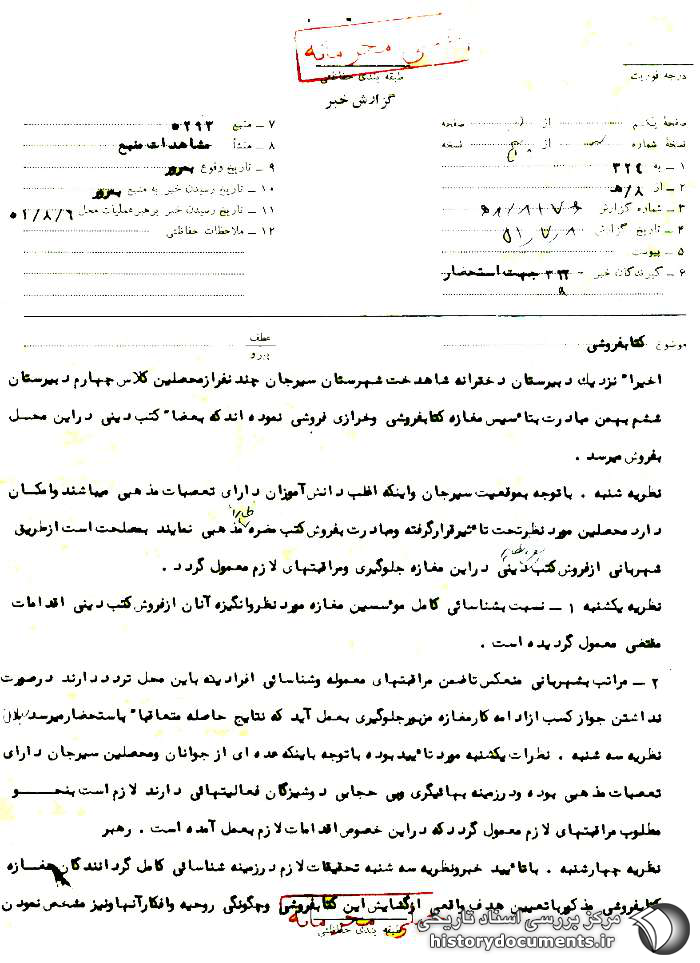 خیلی محرمانه
طبقه بندی حفاظتی
درجه فوریت
گزارش خبر
صفحهٔ یکم از صفحه
نسخهٔ شماره از نسخه
۱ – به ۳۲۴
۲ – از ۸/ﻫ
۳ – شماره گزارش
۴ – تاریخ گزارش
۵ – پیوست
۶ – گیرندگان خبر – ۳۲۲ جهت استحضار
۷ – منبع ۵۲۹۳
۸ – منشأ مشاهدات منبع
۹ – تاریخ وقوع بمرور
۱۰ – تاریخ رسیدن خبر به منبع بمرور
۱۱ – تاریخ رسیدن خبر برهبر عملیات محل ۵۲/۸/۶
۱۲ – ملاحظات حفاظتی
موضوع کتابفروشی
عطف
پیرو
اخیرا" نزدیک دبیرستان دخترانه شاهدخت شهرستان سیرجان چند نفر از محصلین کلاس چهارم دبیرستان
ششم بهمن مبادرت بتا٬سیس مغازه کتابفروشی وخرازی فروشی نموده اند که بعضا" کتب دینی در این محل
بفروش میرسد .
نظریه شنبه . باتوجه بموقعیت سیرجان واینکه اغلب دانش آموزان دارای تعصبات مذهبی میباشند وامکان
دارد محصلین مورد نظر تحت تا٬ثیر قرار گرفته ومبادرت بفروش کتب مضره ظاهرا مذهبی نمایند بمصلحت است از طریق
شهربانی از فروش کتب دینی در این مغازه جلوگیری ومراقبتهای لازم معمول گردد .
نظریه یکشنبه ۱ – نسبت بشناسائی کامل مو٬سسین مغازه مورد نظر وانگیزه آنان از فروش کتب دینی اقدامات
مقتضی معمول گردیده است .
۲ – مراتب بشهربانی منعکس تا ضمن مراقبتهای معموله وشناسائی افرادیکه باین محل تردد دارند در صورت
نداشتن جواز کسب از ادامه کار مغازه مزبور جلوگیری بعمل آید که نتایج حاصله متعاقبا" باستحضار میرسد
نظریه سه شنبه . نظرات یکشنبه مورد تا٬یید بوده باتوجه باینکه عده ای از جوانان ومحصلین سیرجان دارای
تعصبات مذهبی بوده ودر زمینه بهائیگری وبی حجابی دوشیزگان فعالیتهائی دارند لازم است بنحو
مطلوب مراقبتهای لازم معمول گردد که در این خصوص اقدامات لازم بعمل آمده است . رهبر
نظریه چهارشنبه . باتا٬یید خبر ونظریه سه شنبه تحقیقات لازم در زمینه شناسائی کامل گردانندگان مغازه
کتابفروشی مذکور با تعیین هدف واقعی از گشایش این کتابفروشی وچگونگی روحیه وافکار آنها ونیز مشخص نمودن
خیلی محرمانه
طبقه بندی حفاظتی
مرکز بررسی اسناد تاریخی
historydocuments.ir